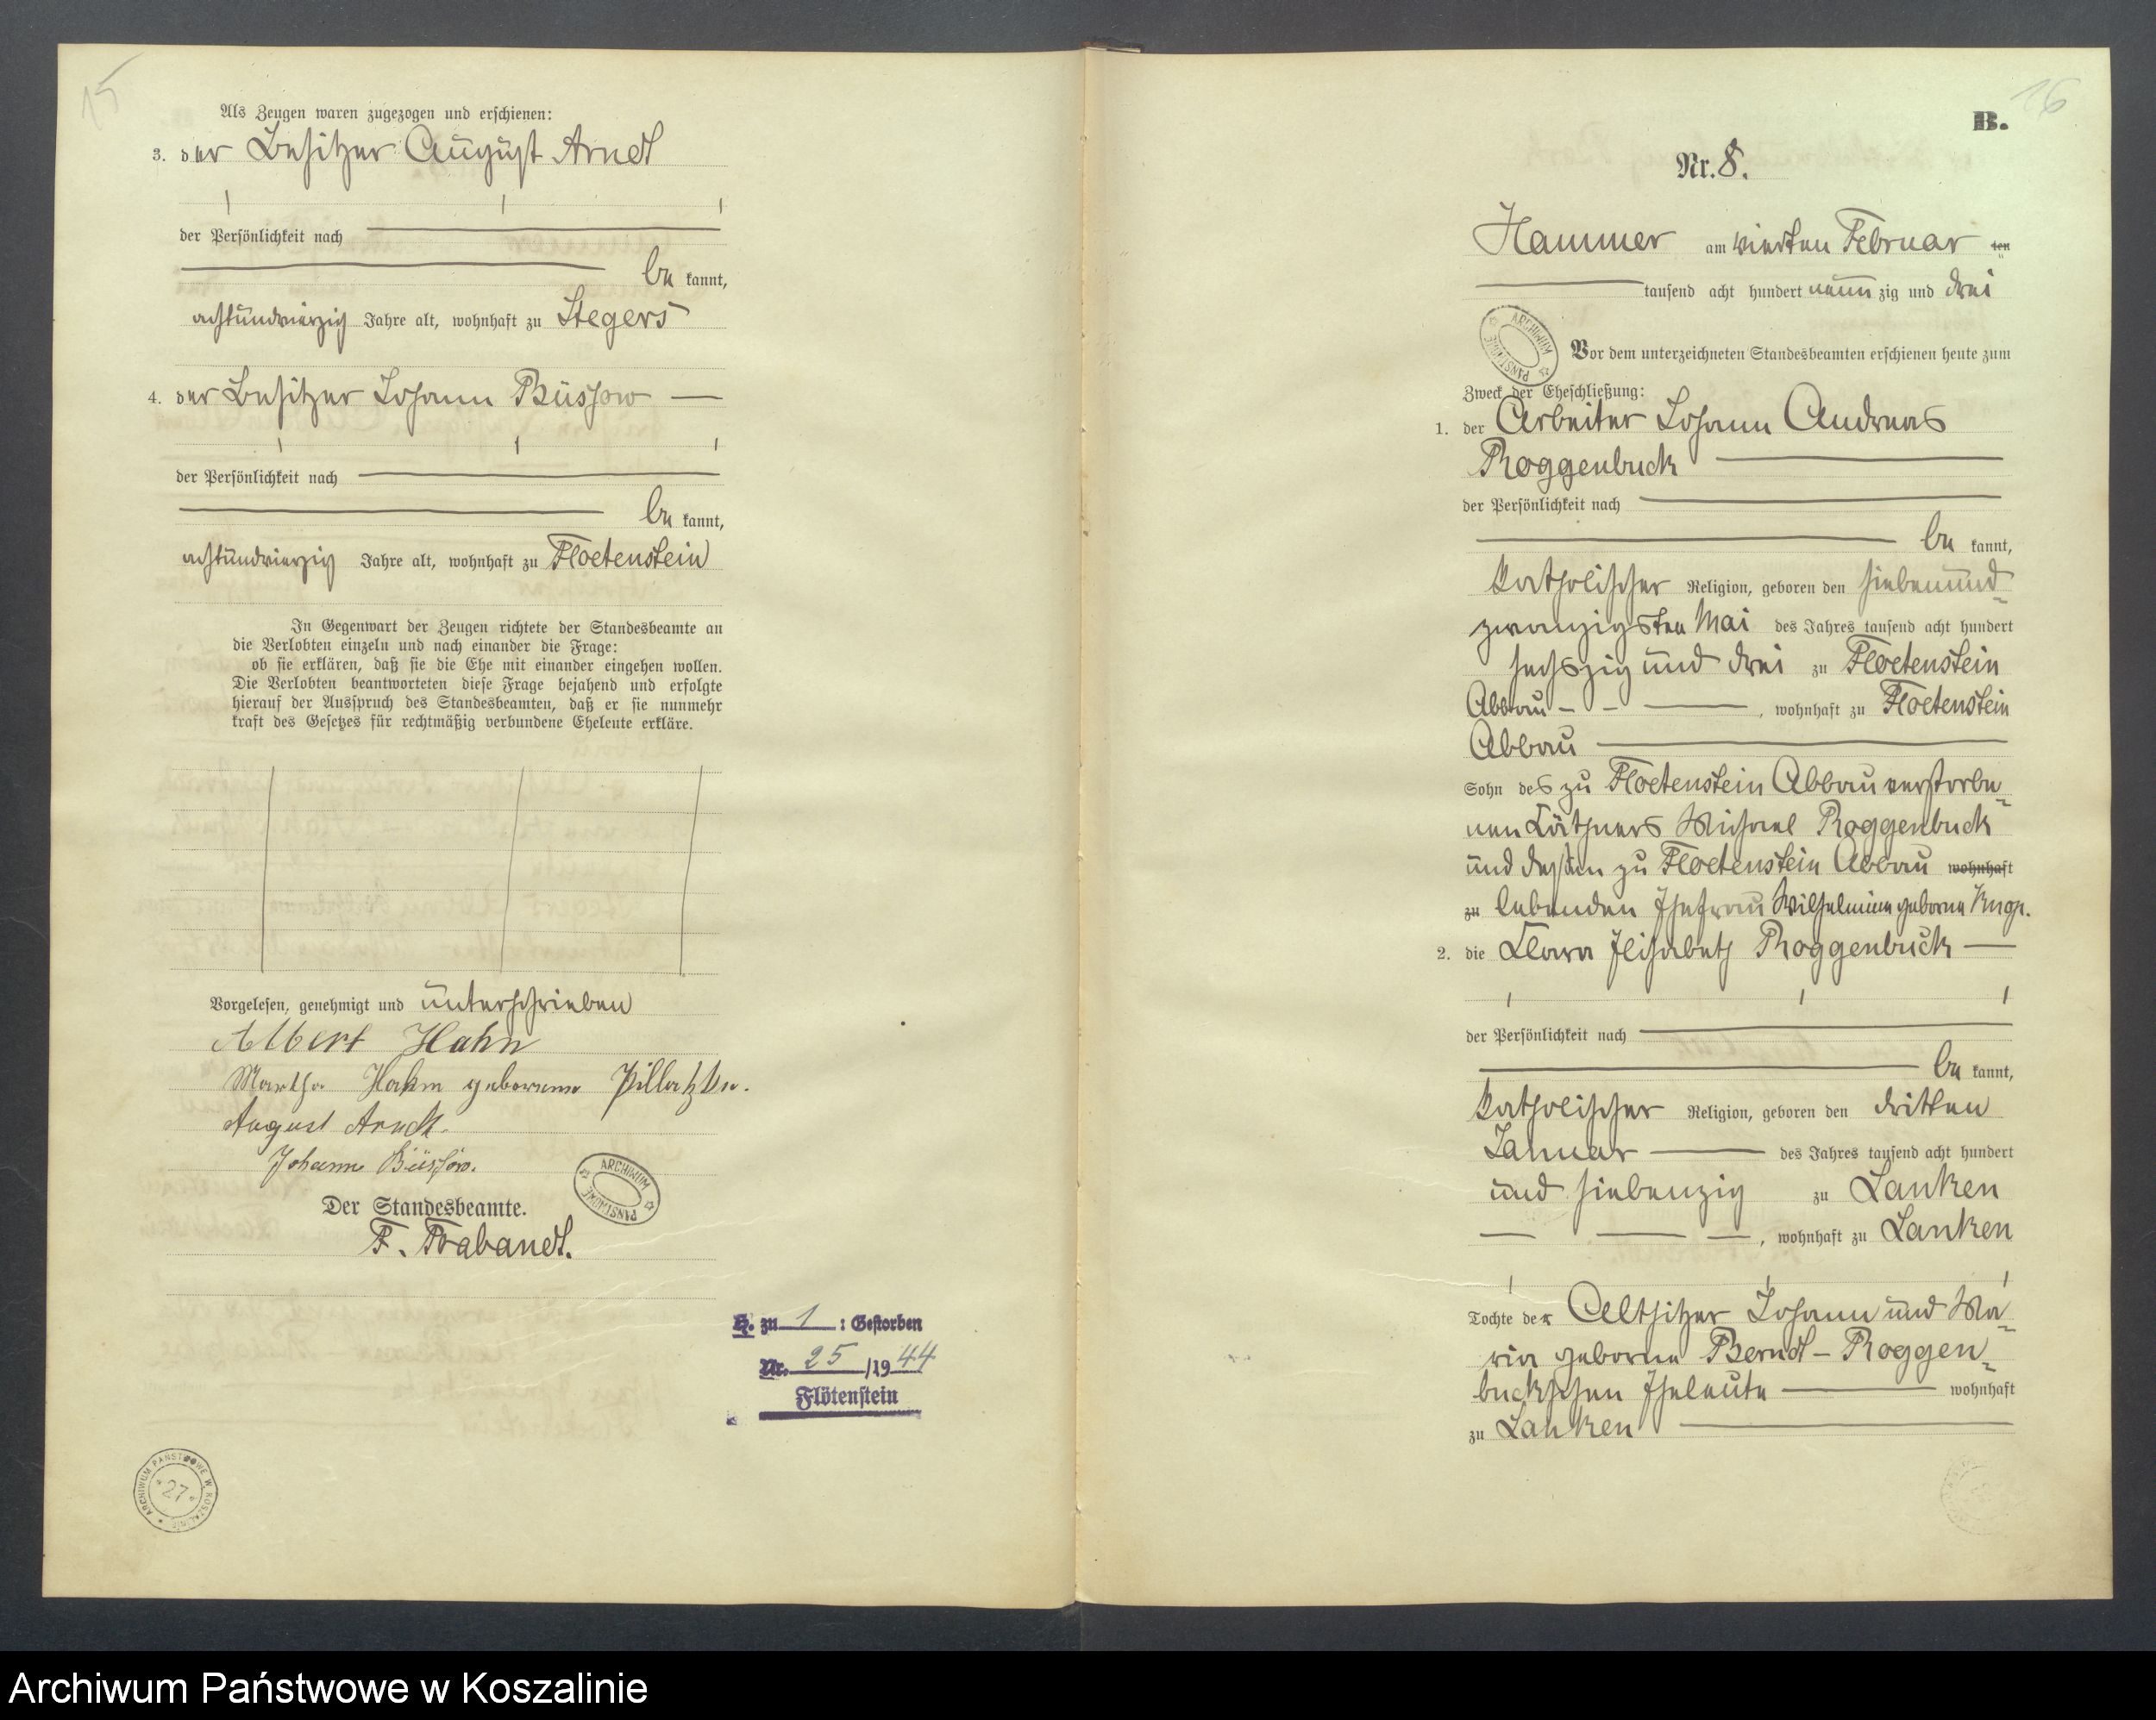 15
Als Zeugen waren zugezogen und erschienen:
3. der Besitzer August Arndt
der Persönlichkeit nach
be kannt,
achtundvierzig Jahre alt, wohnhaft zu Stegers
4. der Besitzer Johann Büssow
der Persönlichkeit nach
be kannt,
achtundvierzig Jahre alt, wohnhaft zu Floetenstein
In Gegenwart der Zeugen richtete der Standesbeamte an
die Verlobten einzeln und nach einander die Frage:
ob sie erklären, daß sie die Ehe mit einander eingehen wollen.
Die Verlobten beantworteten diese Frage bejahend und erfolgte
hierauf der Ausspruch des Standesbeamten, daß er sie nunmehr
kraft des Gesetzes für rechtmäßig verbundene Eheleute erkläre.
Vorgelesen, genehmigt und unterschrieben
Albert Hahn
Martha Hahn geborene Pillatzke.
August Arndt.
Johann Büssow.
Der Standesbeamte.
F. Brabandt.
ARCHIWUM PAŃSTWOWE
H. zu 1 : Gestorben
Nr. 25 /1944
Flötenstein
ARCHIWUM PAŃSTWOWE W KOSZALINIE
27
16
B.
Nr. 8.
Hammer am vierten Februar ten
tausend acht hundert neun zig und drei
ARCHIWUM PAŃSTWOWE
Vor dem unterzeichneten Standesbeamten erschienen heute zum
Zweck der Eheschließung:
1. der Arbeiter Johann Andreas
Roggenbuck
der Persönlichkeit nach
be kannt,
katholischer Religion, geboren den siebenund-
zwanzigsten Mai des Jahres tausend acht hundert
sechszig und drei zu Floetenstein
Abbau - - , wohnhaft zu Floetenstein
Abbau
Sohn des zu Floetenstein Abbau verstorbe-
nen Käthners Michael Roggenbuck
und dessen zu Floetenstein Abbau wohnhaft
zu lebenden Ehefrau Wilhelmine geborne
2. die Clara Elisabeth Roggenbuck
der Persönlichkeit nach
be kannt,
katholischer Religion, geboren den dritten
Januar des Jahres tausend acht hundert
und siebenzig zu Lanken
, wohnhaft zu Lanken
Tochte der Altsitzer Johann und Ma-
ria geborne Berndt - Roggen-
buckschen Eheleute wohnhaft
zu Lanken
Archiwum Państwowe w Koszalinie